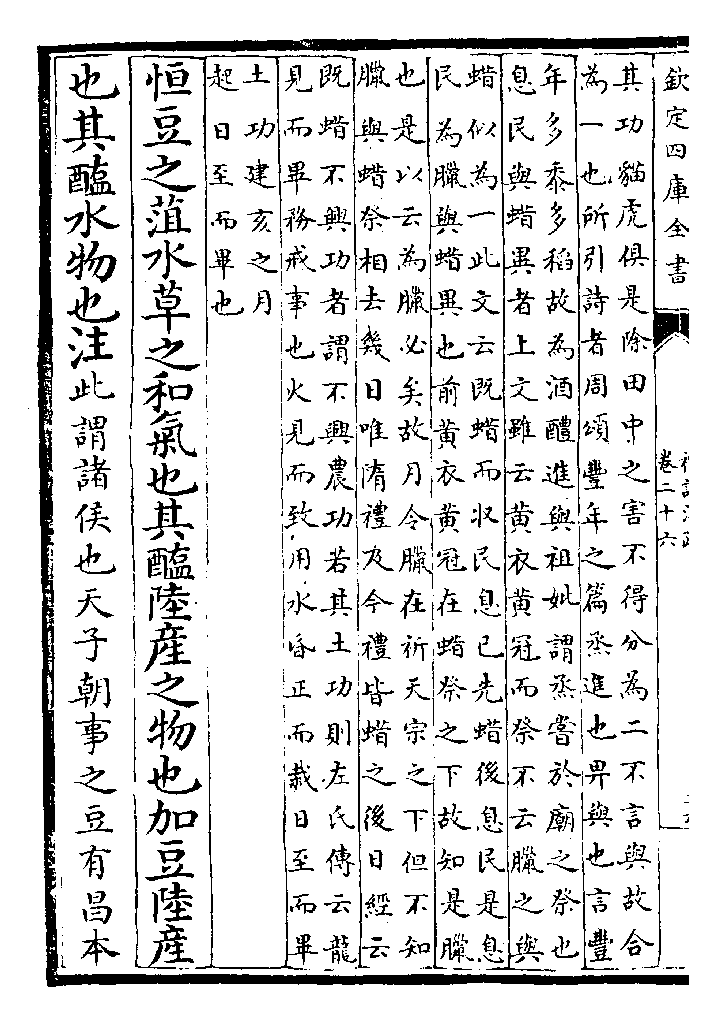 欽定四庫全書
卷二十六
其功貓虎俱是除田中之害不得分為二不言與故合
為一也所引詩者周頌豐年之篇烝進也畀與也言豐
年多黍多稻故為酒醴進與祖妣謂烝嘗於廟之祭也
息民與蜡異者上文雖云黃衣黃冠而祭不云臘之與
蜡似為一此文云既蜡而收民息已先蜡後息民是息
民為臘與蜡異也前黃衣黃冠在蜡祭之下故知是臘
也是以云為臘必矣故月令臘在祈天宗之下但不知
臘與蜡祭相去幾日唯隋禮及今禮皆蜡之後日經云
既蜡不興功者謂不興農功若其土功則左氏傳云龍
見而畢務戒事也火見而致用水昏正而栽日至而畢
土功建亥之月
起日至而畢也
恒豆之菹水草之和氣也其醢陸産之物也加豆陸産
也其醢水物也注此謂諸侯也天子朝事之豆有昌本